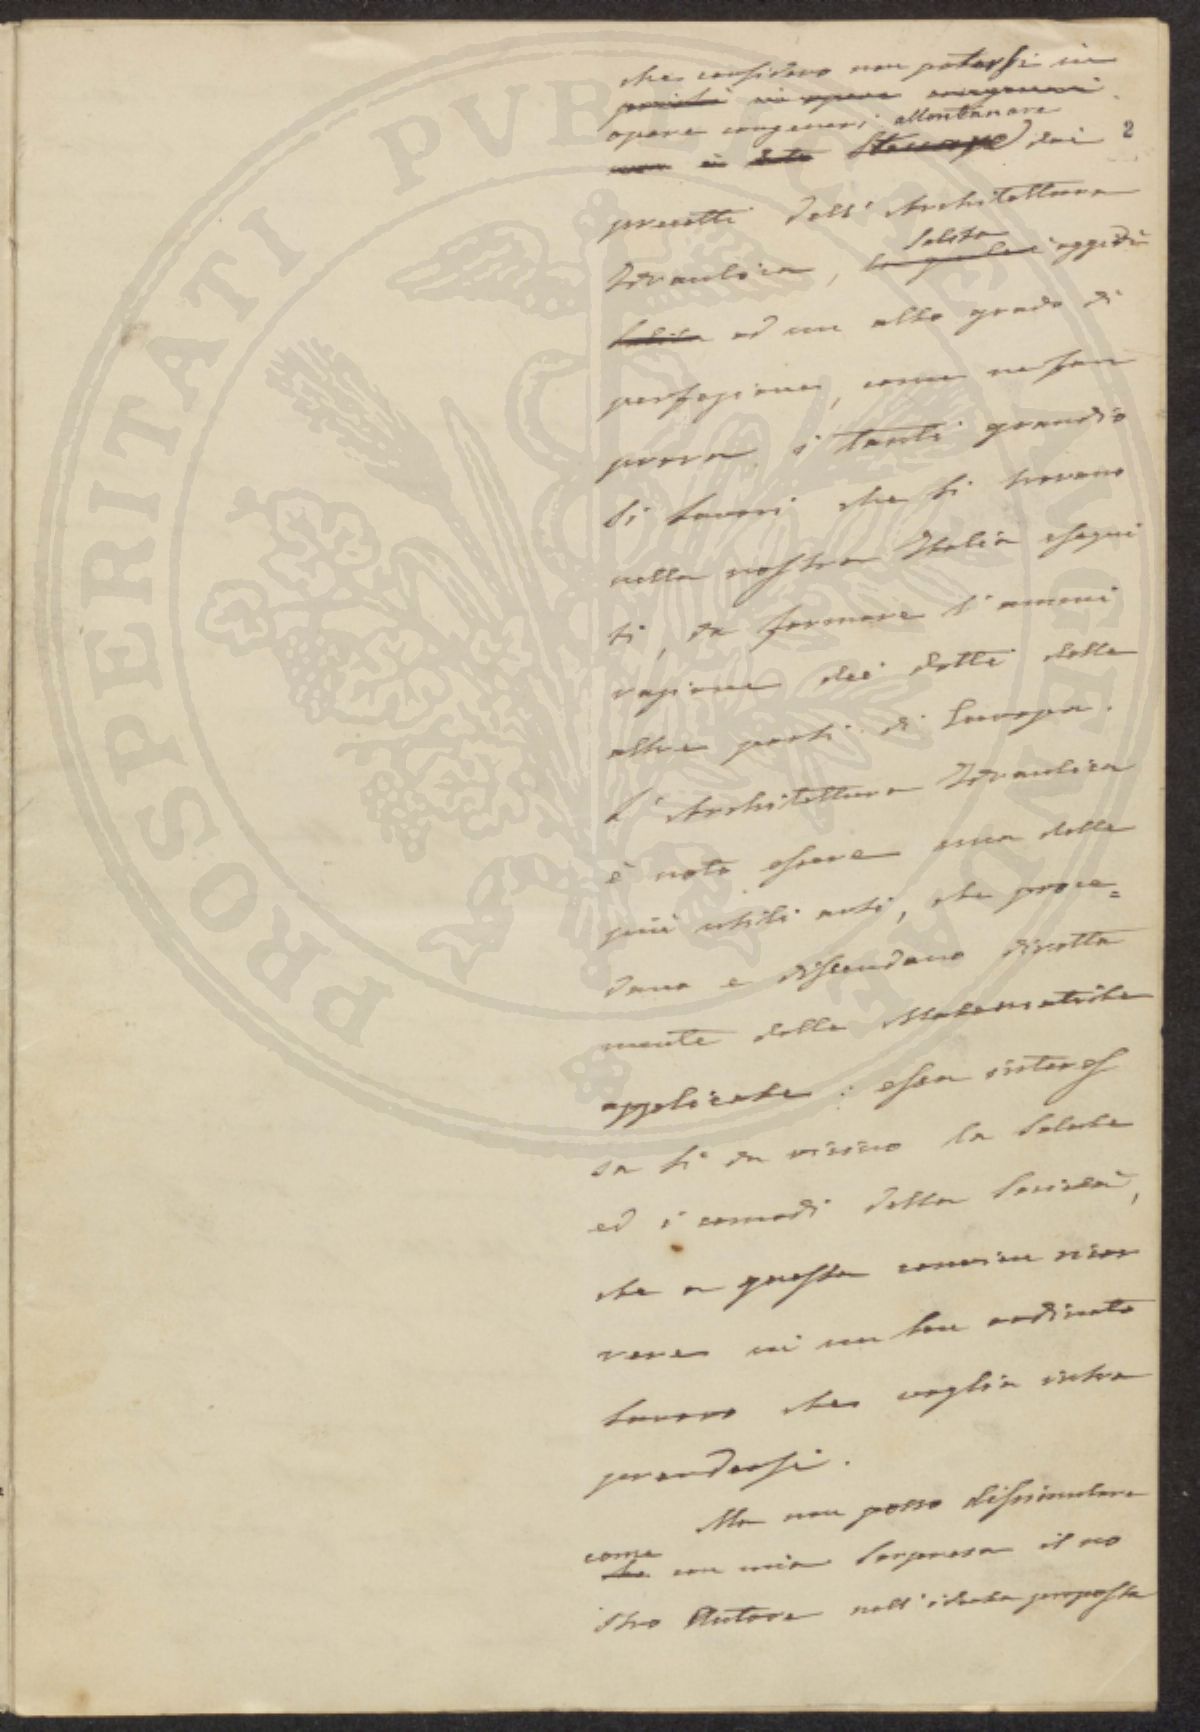 che considero non potersi in
poichè in opere congeneri
opere congeneri allontanare
non è dato dai
2
precetti dell'Architettura
Salita
Idraulica, la quale è oggidì
salita ad un alto grado di
perfezione, come ne fan
prova i tanti grandio
si lavori che si trovano
nella nostra Italia esegui
ti, da formare l'ammi
razione dei dotti delle
altre parti di Europa.
L'Architettura Idraulica
è noto essere una delle
più utili arti, che proce=
dano e discendano diretta
mente dalle Matematiche
applicate: essa interes
sa sì da vicino la salute
ed i comodi della Società,
che a questa convien ricor
rere in un ben ordinato
lavoro che voglia intra
prendersi.
Ma non posso dissimulare
come
che con mia sorpresa il no
stro Autore nell'ideata proposta
PROSPERITATI PVBLICAE AVGENDAE